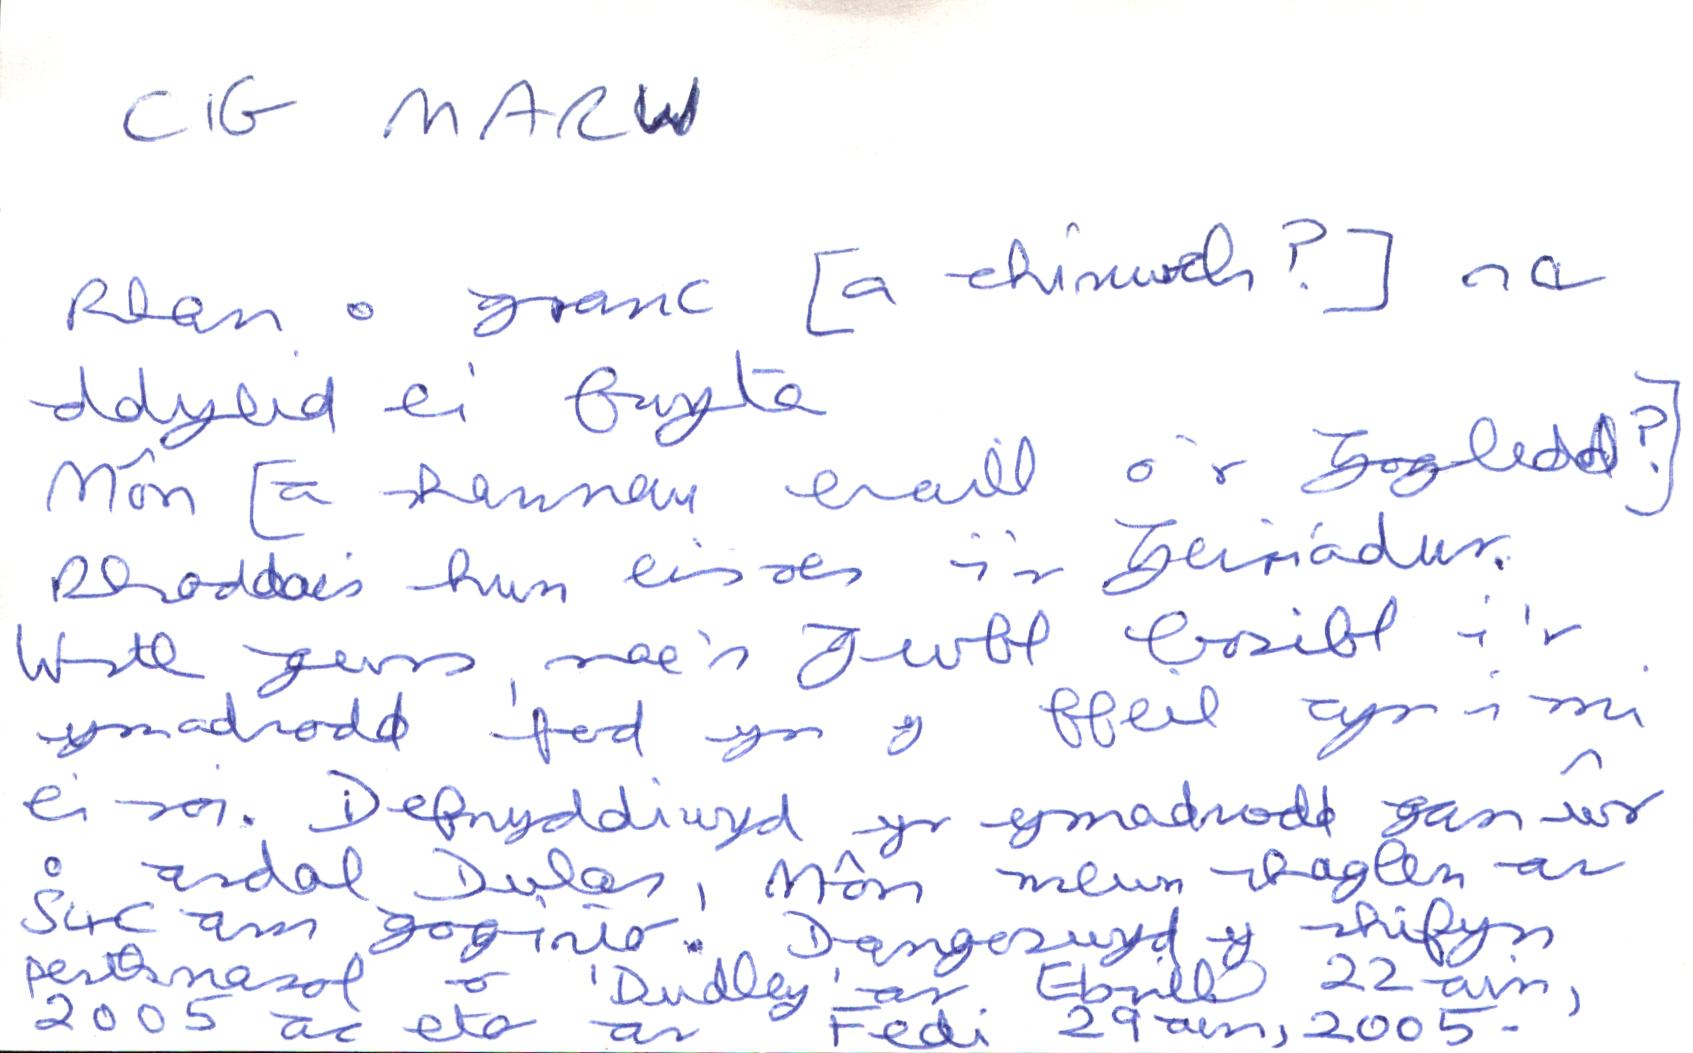 CIG MARW
Rhan o granc [a chimwch?] na
ddylid ei fwyta
Môn [a rhannau eraill o'r Gogledd?]
Rhoddais hun eisoes i'r Geiriadur.
Wrth gwrs, mae'n gwbl bosibl i'r
ymadrodd fod yn y ffeil cyn i mi
ei roi. Defnyddiwyd yr ymadrodd gan ŵr
o ardal Dulas, Môn mewn rhaglen ar
S4C am goginio. Dangoswyd y rhifyn
perthnasol o 'Dudley' ar Ebrill 22ain,
2005 ac eto ar Fedi 29ain, 2005.